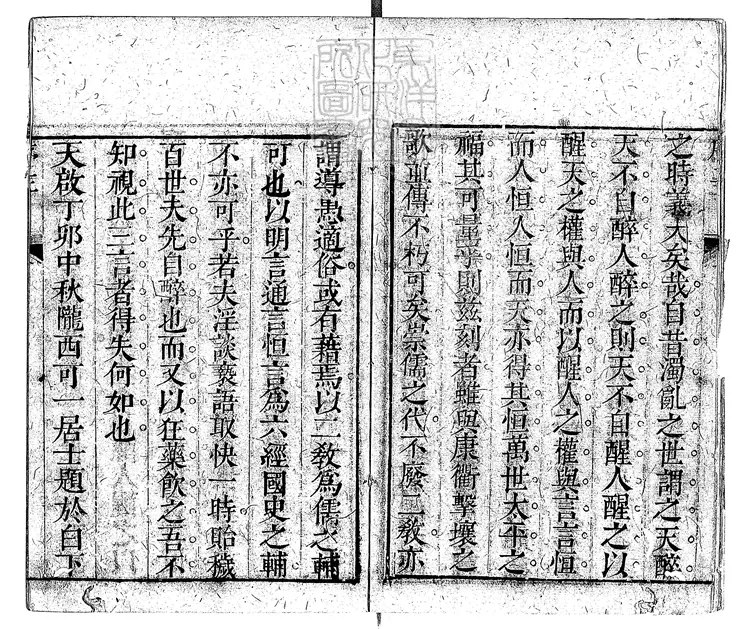 之時義大矣哉自昔濁亂之世謂之天醉
天不自醉人醉之則天不自醒人醒之以
醒天之權與人而以醒人之權與言言恒
而人恒人恒而天亦得其恒萬世太平之
福其可量乎則茲刻者雖與康衢擊壤之
歌並傳不朽可矣崇儒之代不廢二教亦
謂導愚適俗或有藉焉以二教為儒之輔
可也以明言通言恒言為六經國史之輔
不亦可乎若夫淫談褻語取快一時貽穢
百世夫先自醉也而又以狂藥飲之吾不
知視此三言者得失何如也
天啟丁卯中秋隴西可一居士題於白下